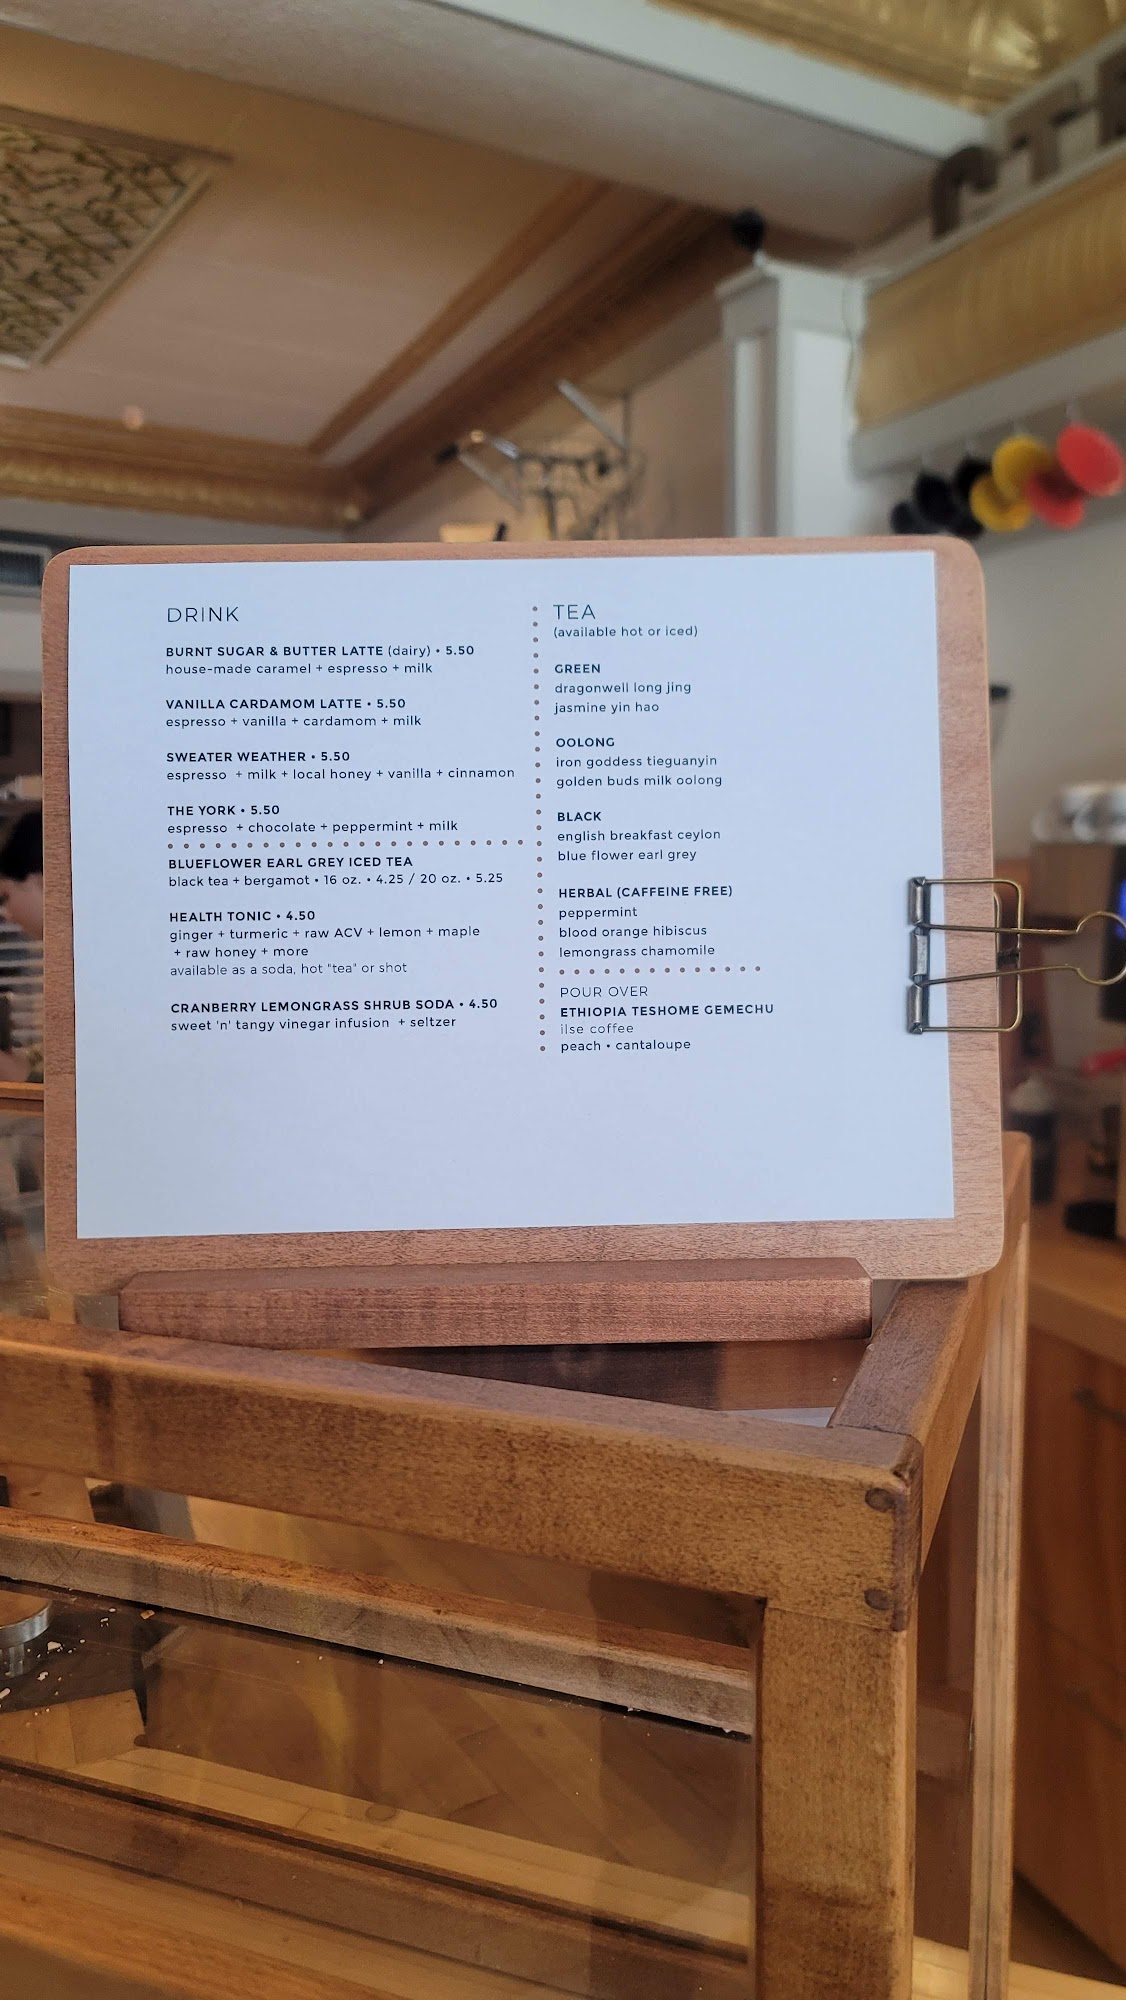 DRINK
BURNT SUGAR & BUTTER LATTE (dairy) • 5.50
house-made caramel + espresso + milk
VANILLA CARDAMOM LATTE • 5.50
espresso + vanilla + cardamom + milk
SWEATER WEATHER • 5.50
espresso + milk + local honey + vanilla + cinnamon
THE YORK • 5.50
espresso + chocolate + peppermint + milk
BLUEFLOWER EARL GREY ICED TEA
black tea + bergamot • 16 oz. • 4.25 / 20 oz. • 5.25
HEALTH TONIC • 4.50
ginger + turmeric + raw ACV + lemon + maple
+ raw honey + more
available as a soda, hot "tea" or shot
CRANBERRY LEMONGRASS SHRUB SODA • 4.50
sweet 'n' tangy vinegar infusion + seltzer
TEA
(available hot or iced)
GREEN
dragonwell long jing
jasmine yin hao
OOLONG
iron goddess tieguanyin
golden buds milk oolong
BLACK
english breakfast ceylon
blue flower earl grey
HERBAL (CAFFEINE FREE)
peppermint
blood orange hibiscus
lemongrass chamomile
POUR OVER
ETHIOPIA TESHOME GEMECHU
ilse coffee
peach • cantaloupe